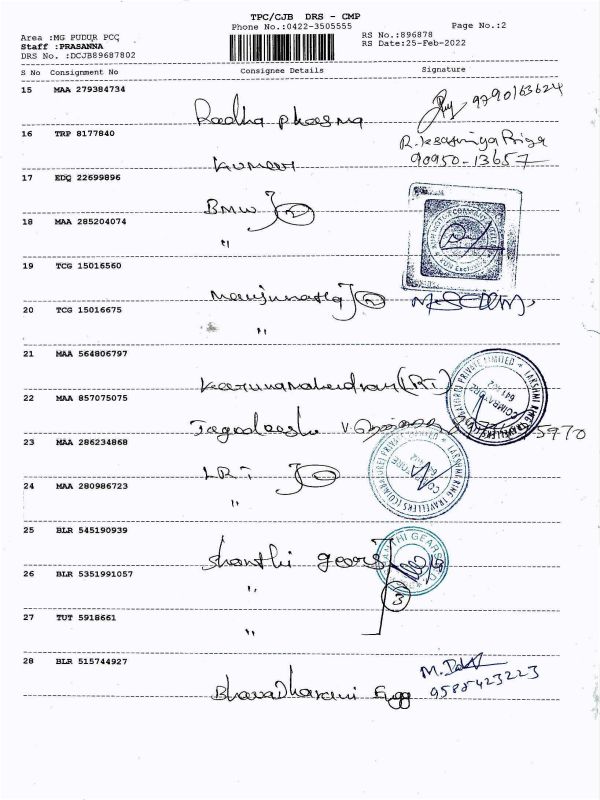 TPC/CJB DRS - CMP
Phone No.:0422-3505555
Page No.:2
Area :MG PUDUR PCC
RS No.:896878
Staff :PRASANNA
RS Date:25-Feb-2022
DRS No. :DCJB89687802
S No Consignment No Consignee Details Signature
15 MAA 279384734
9790163624
Radha
16 TRP 8177840
Kumar
90950-13657
17 EDQ 22699896
BMW 2
18 MAA 285204074
"
19 TCG 15016560
Manjunatha 2
20 TCG 15016675
"
21 MAA 564806797
(LRT)
COIMBATORE
22 MAA 857075075
Jagadeesh
5970
23 MAA 286234868
LRT 2
LAKSHMI RING TRAVELLERS (COIMBATORE) PRIVATE LIMITED
COIMBATORE
24 MAA 280986723
"
25 BLR 545190939
Shanthi gears
26 BLR 5351991057
"
3
27 TUT 5918661
"
28 BLR 515744927
9585423223
Bhavadharani Engg